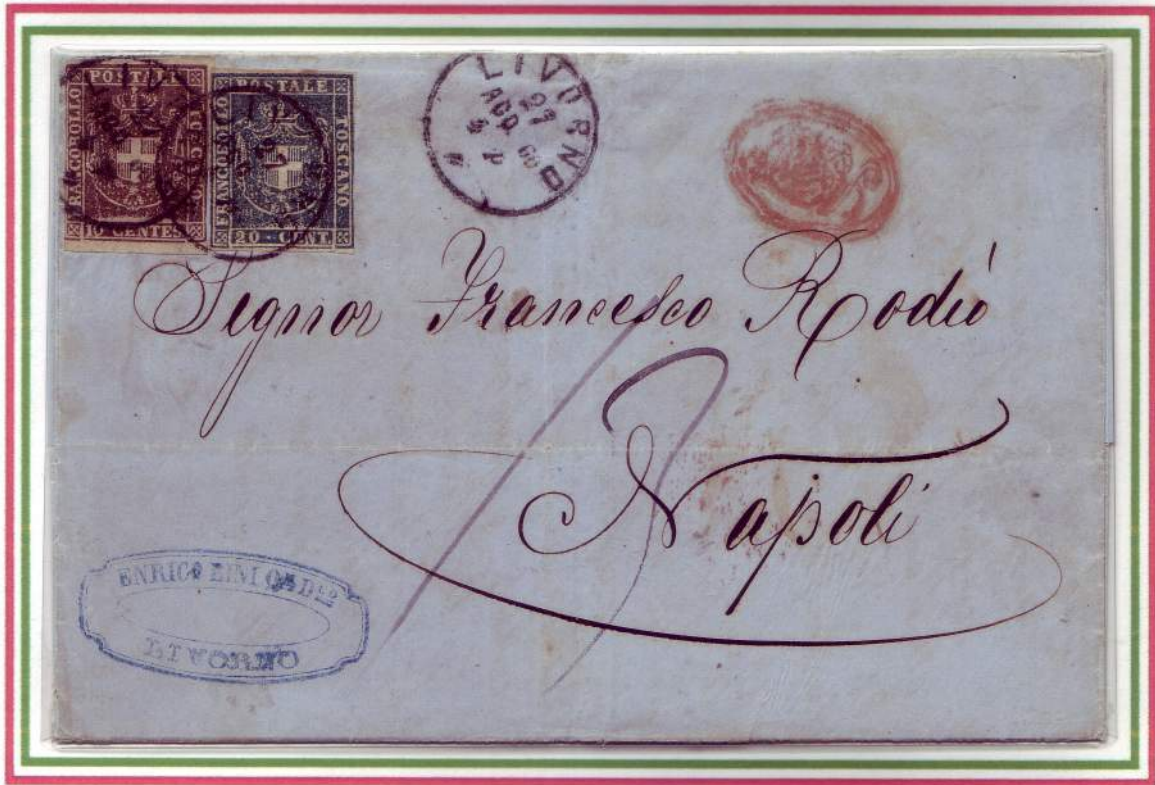 FRANCOBOLLO POSTALE TOSCANO
10 CENTES
FRANCOBOLLO POSTALE TOSCANO
20 CENT
LIVORNO
27
AGO 60
4 P
Signor Francesco Rodió
Napoli
ENRICO
LIVORNO